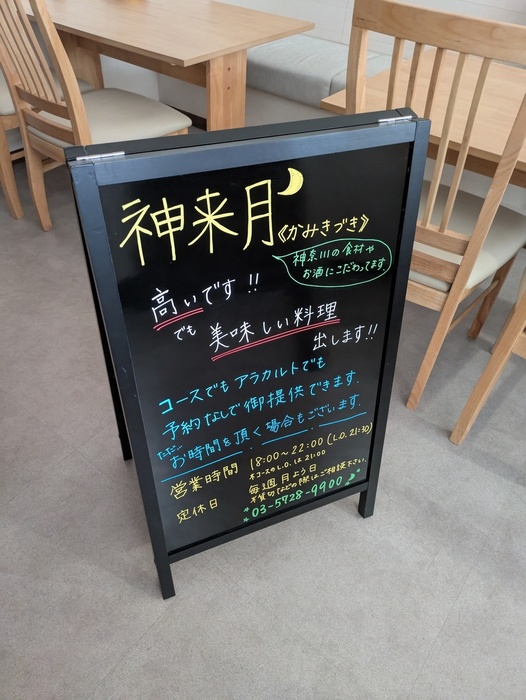 神来月《かみきづき》
神奈川の食材や
お酒にこだわってます。
高いです!!
でも 美味しい料理
出します!!
コースでもアラカルトでも
予約なしで御提供できます。
ただし
お時間を頂く場合もございます。
営業時間 18:00～22:00(L.O. 21:30)
※コースのL.O.は21:00
定休日 毎週月よう日
※貸切などの際はご相談下さい。
03-5728-9900